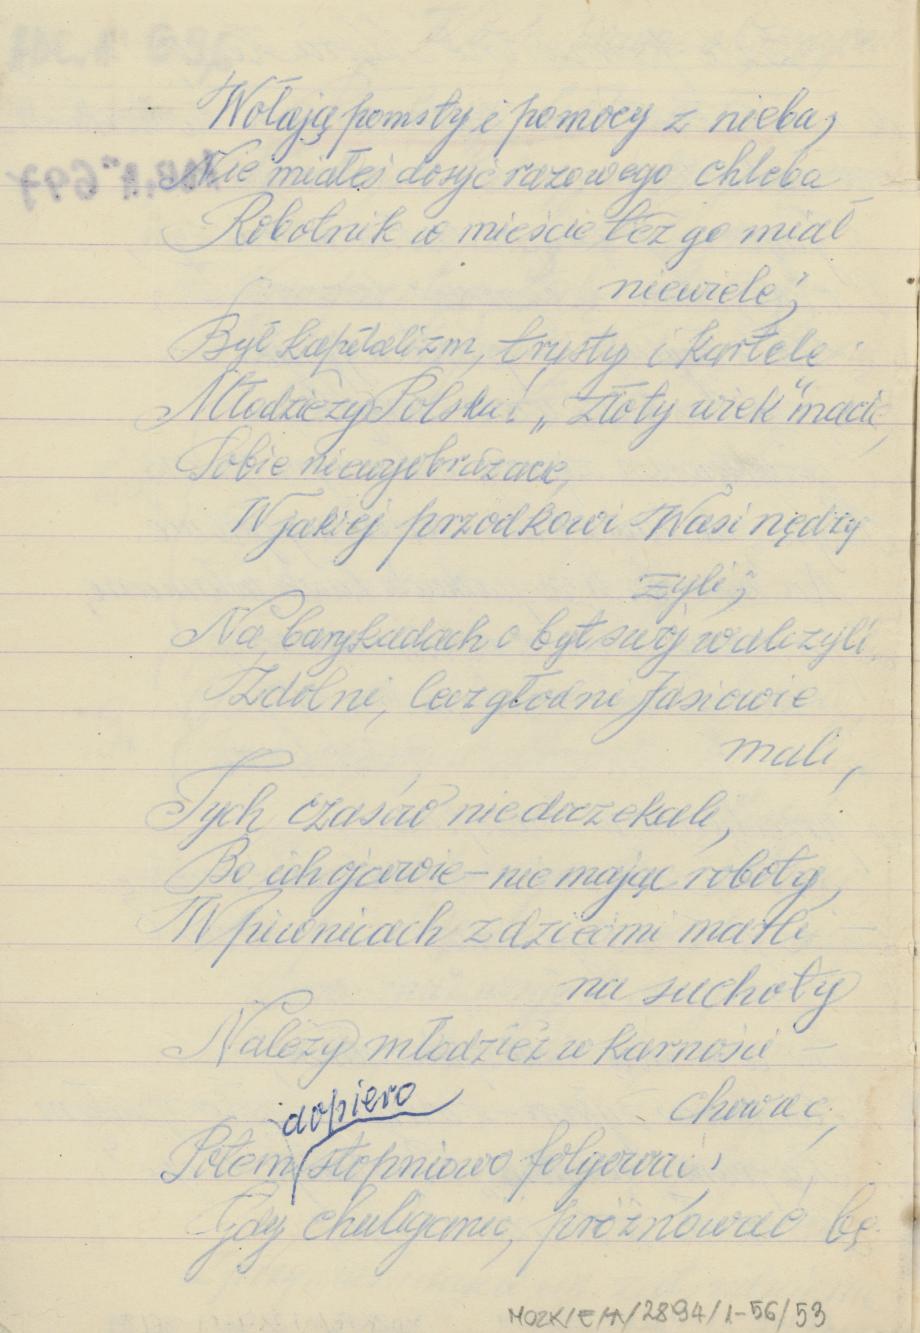 Wołają pomsty i pomocy z nieba,
Nie miałeś dosyć razowego chleba
Robotnik w mieście też go miał
niewiele,
Był kapitalizm, trysty i kartele.
Młodzieży Polska! „złoty wiek” macie,
Sobie niewyobrażacie,
W jakiej przodkowi Wasi nędzy
żyli,
Na barykadach o byt swój walczyli.
Zdolni, lecz głodni Jasiowie
mali,
Tych czasów niedoczekali,
Bo ich ojcowie – nie mając roboty,
W piwnicach z dziećmi marli –
na suchoty
Należy młodzież w karności –
chować,
dopiero
Potem stopniowo folgować,
Gdy chuliganić, próżnować bę-
MOZK/E/A/2894/1-56/53